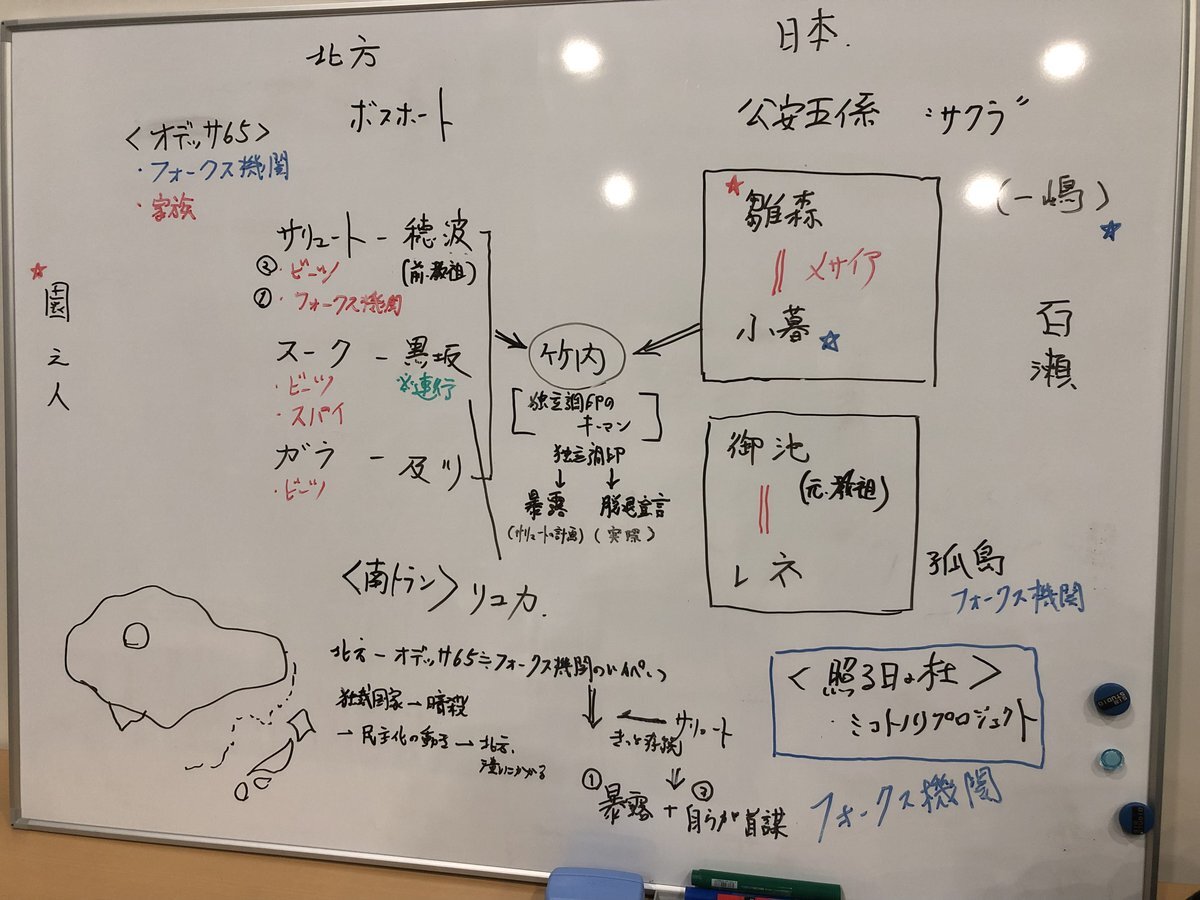 北方
日本.
ボスホート
公安五係 "サクラ"
<オデッサ65>
・フォークス機関
・家族
サリュート - 穂波
③・ビーツ
(前.教祖)
①・フォークス機関
スーク - 黒坂
・ビーツ
※連行
・スパイ
ガラ - 及川
・ビーツ
圏之人
竹内
独立調印の
キーマン
独立調印
↓ ↓
暴露 脱退宣言
(サリュートの計画) (実際)
雛森
メサイア
小暮
(一嶋)
百瀬
御池
(元.教祖)
レネ
孤島
フォークス機関
<南トラン> リュカ.
北方 - オデッサ65 = フォークス機関の
独裁国家→暗殺
→ 民主化の動き → 北方.
サリュート
きっと存続
① ③
暴露 + 自らが首謀
<照る日の杜>
・ミコトノリプロジェクト
フォークス機関